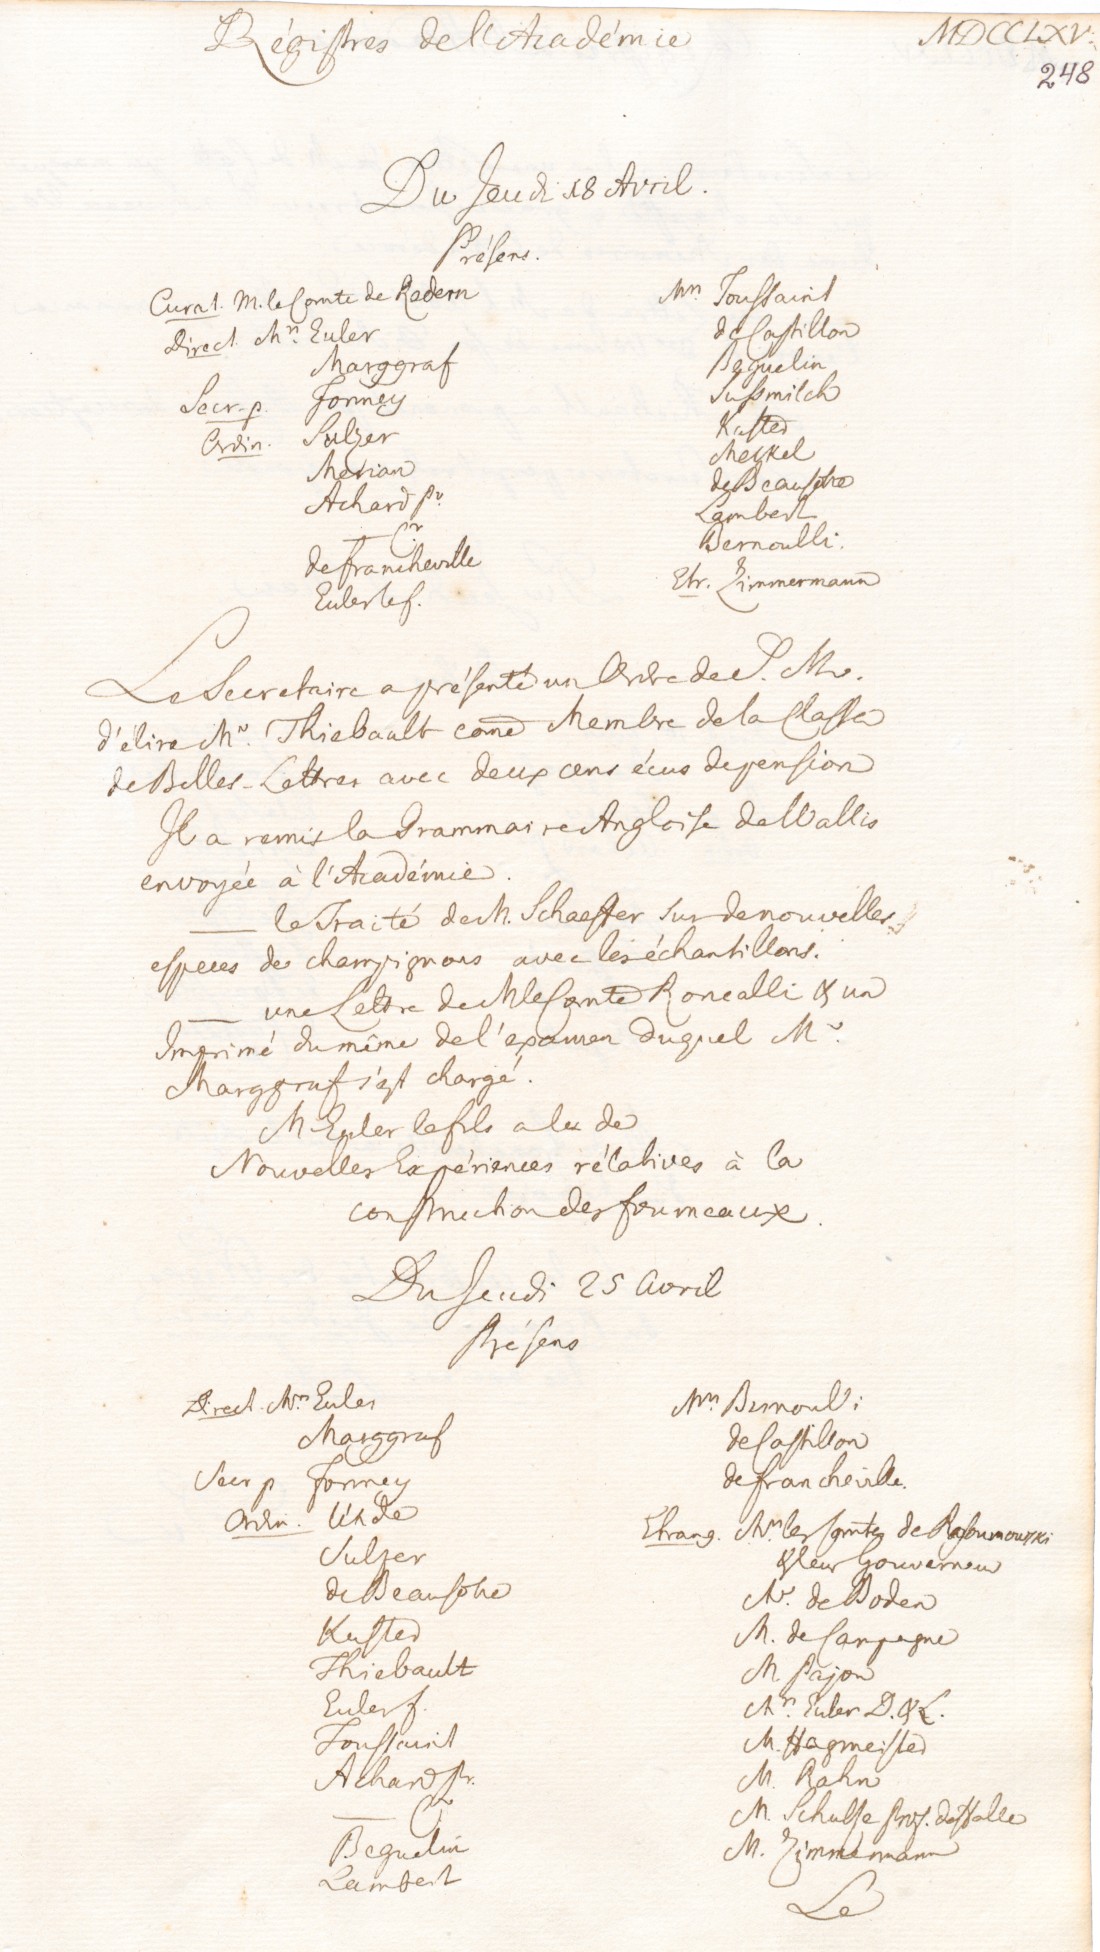 Régistres de l'Académie
MDCCLXV.
248
Du Jeudi 18 Avril.
Présens.
Curat. M. le Comte de Redern
Direct. Mrs. Euler
Marggraf
Secr. p. Formey
Ordin. Sulzer
Merian
Achard Pr.
— Cr.
de Francheville
Euler le f.
Mrs Toussaint
de Castillon
Beguelin
Sussmilch
Kuster
Meckel
de Beausobre
Lambert
Bernoulli.
Etr. Zimmermann
Le Secretaire a présenté un Ordre de S. M.
d'élire Mr. Thiebault come Membre de la Classe
de Belles-Lettres avec deux cens écus de pension
Il a remis la Grammaire Angloise de Wallis
envoyée à l'Académie.
— le Traité de M. Schaeffer sur de nouvelles
especes de champignons avec les échantillons.
— une Lettre de M le Comte Roncalli & un
Imprimé du même de l'examen duquel Mr.
Marggraf s'est chargé.
M Euler le fils a lu de
Nouvelles Expériences rélatives à la
construction des fourneaux.
Du Jeudi 25 Avril
Présens
Direct. Mrs Euler
Marggraf
Secr p Formey
Ordin. Uhde
Sulzer
de Beausobre
Kuster
Thiebault
Euler f.
Toussaint
Achard Pr.
— Cr
Beguelin
Lambert
Mrs Bernoulli
de Castillon
de Francheville.
Etrang. Mrs les Comtes de Rasoumowski
& leur Gouverneur
Mr. de Boden
M. de Campagne
M. Pajon
Mr. Euler D. & L.
M. Hagmeister
M. Rahn
M. Schulse Prof. de Halle
M. Zimmermann
Le